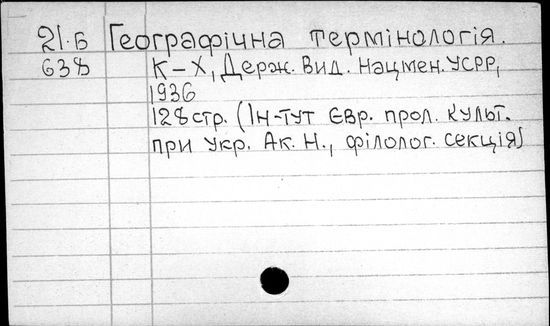 21.Б Географічна термінологія.
638 К–Х, Держ. Вид. Нацмен. УСРР,
1936
128 стр. (Ін-тут Євр. прол. культ.
при Укр. Ак. Н., філолог. секція)